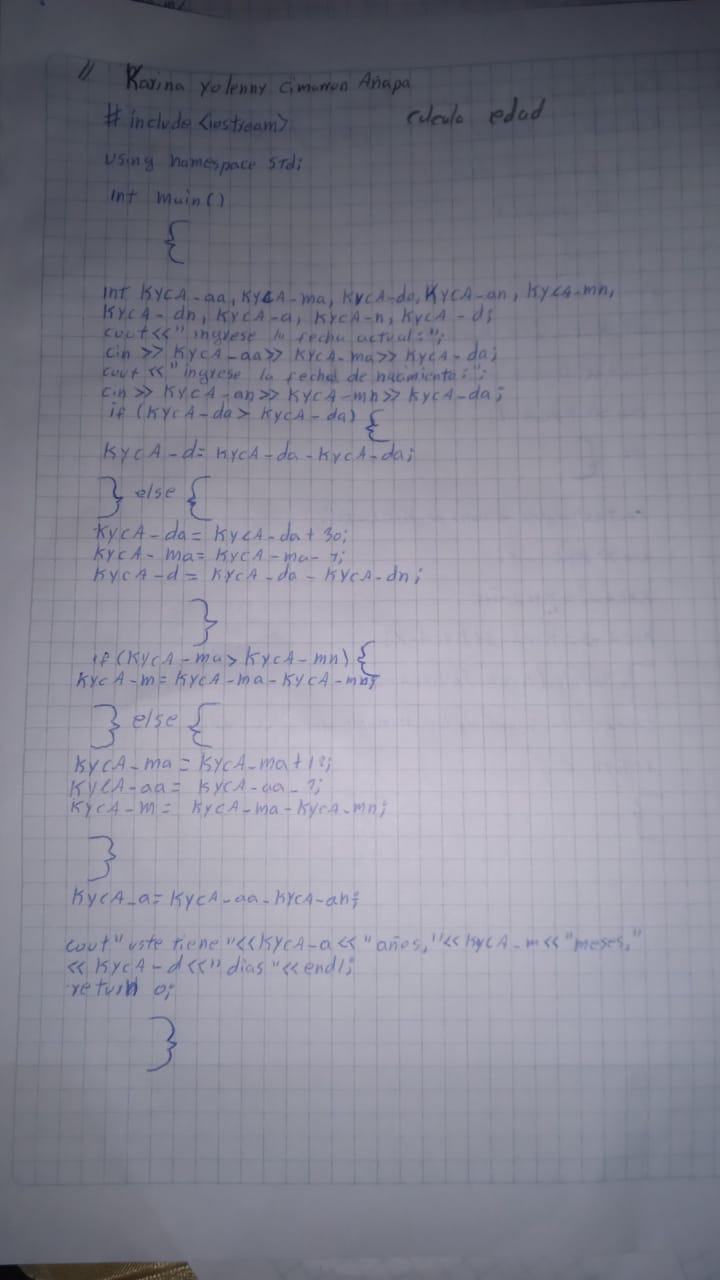 // Karina Yolenny Cimarron Añapa
# include <iostream>
calculo edad
using namespace std;
int main()
{
int KYCA-aa, KYCA-ma, KYCA-da, KYCA-an, KYCA-mn,
KYCA-dn, KYCA-a, KYCA-n, KYCA-d;
cout<<" ingrese la fecha actual:";
cin >> KYCA-aa>> KYCA-ma>> KYCA-da;
cout <<"ingrese la fecha de nacimiento:";
cin >> KYCA-an>> KYCA-mn>> KYCA-da;
if (KYCA-da > KYCA-da) {
KYCA-d= KYCA-da-KYCA-da;
} else {
KYCA-da= KYCA-da+30;
KYCA-ma= KYCA-ma-1;
KYCA-d= KYCA-da-KYCA-dn;
}
if (KYCA-ma> KYCA-mn) {
KYCA-m= KYCA-ma-KYCA-mn;
} else {
KYCA-ma = KYCA-ma+12;
KYCA-aa= KYCA-aa-1;
KYCA-m= KYCA-ma-KYCA-mn;
}
KYCA-a= KYCA-aa-KYCA-an;
cout" uste tiene "<<KYCA-a<< "años,"<<KYCA-m<<"meses,"
<< KYCA-d<<" dias "<<endl;
return 0;
}